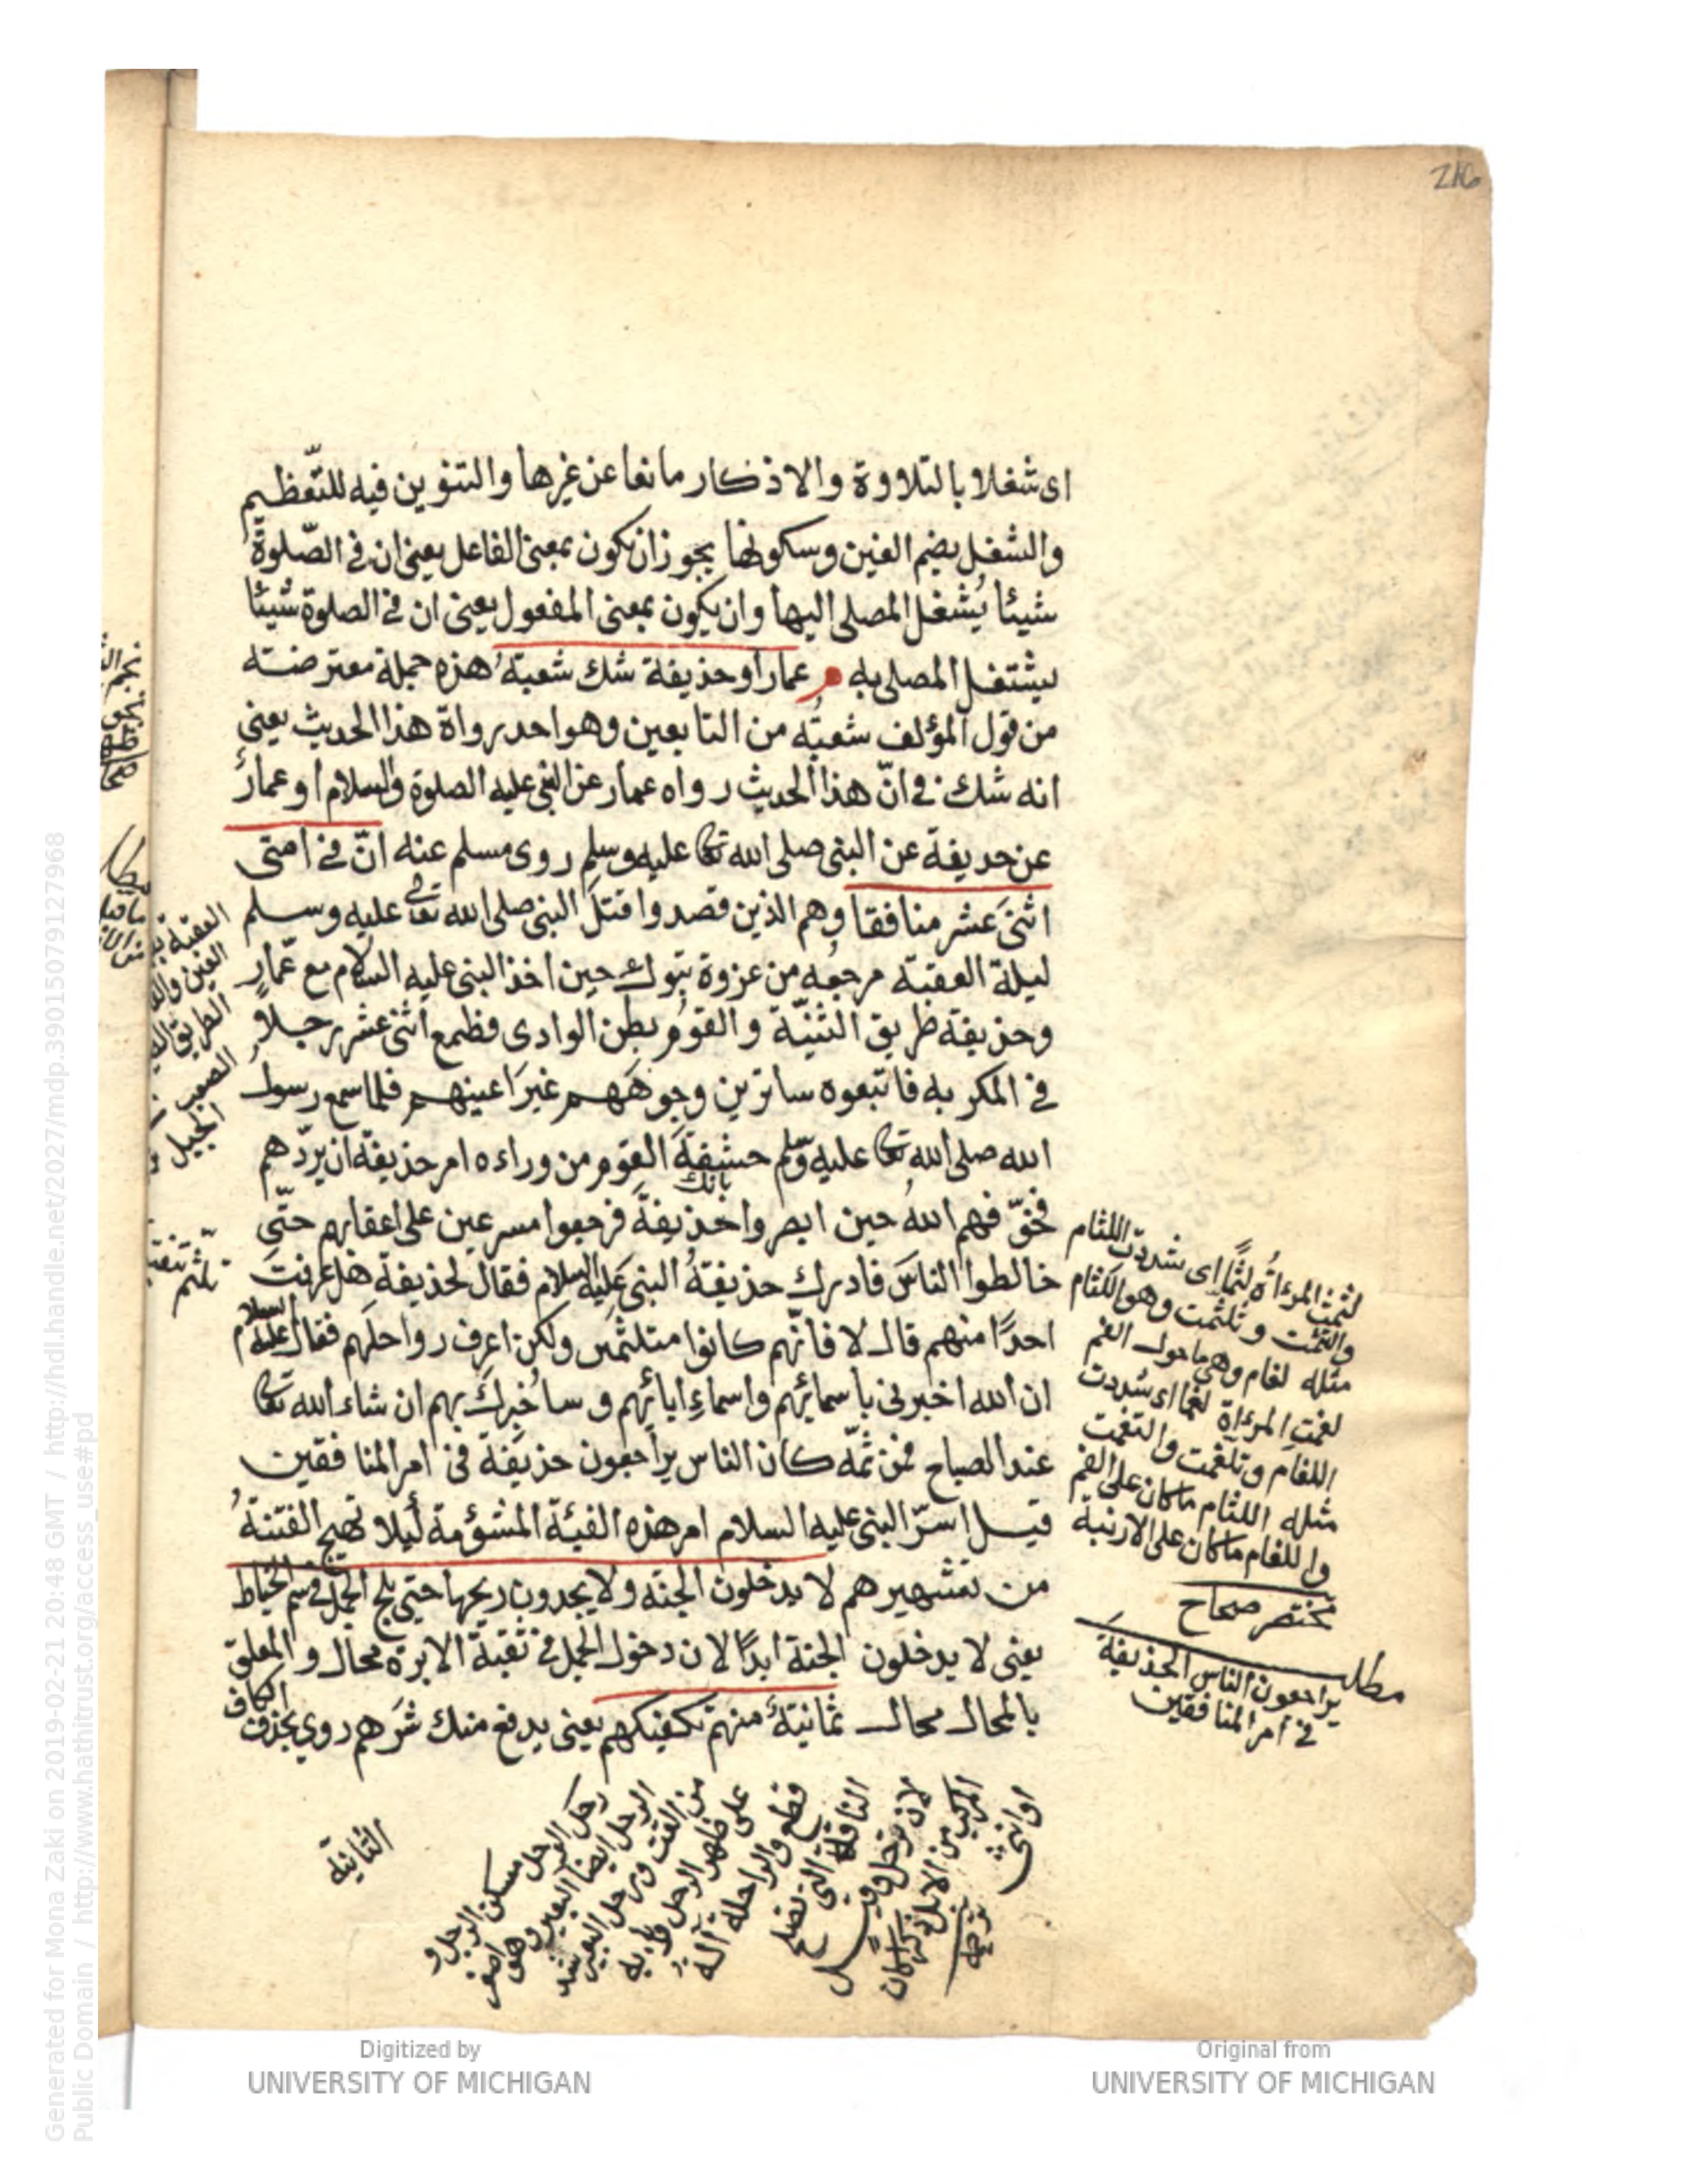 216
اى شغلا بالتلاوة والاذكار مانعا عن غيرها والتنوين فيه للتعظيم
والشغل بضم الغين وسكونها يجوز ان يكون بمعنى الفاعل يعنى ان فى الصّلوة
شيئا يُشغل المصلى اليها وان يكون بمعنى المفعول يعنى ان فى الصلوة شيئا
يشتغل المصلى به م عمار او حذيفة شك شعبة هذه جملة معترضته
من قول المؤلف شعبة من التابعين وهو احد رواة هذا الحديث يعنى
انه شك فى انّ هذا الحديث رواه عمار عن النبى عليه الصلوة والسلام او عمارُ
عن حديفة عن النبى صلى الله تعا عليه وسلم روى مسلم عنه انّ فى امتى
اثنى عشر منافقا وهم الذين قصدوا قتل النبى صلى الله تعالى عليه وسلم
ليلة العقبة مرجعه من غزوة تبوك حين اخذ النبى عليه السلام مع عمّارٍ
وحذيفة طريق الثنيّة والقوم بطن الوادى فطمع اثنى عشر رجلاً
فى المكر به فاتبعوه ساترين وجوههم غير اعينهم فلما سمع رسول
الله صلى الله تعا عليه وسلم خشفة القوم من وراءه امر حذيفة ان يردّهم
بانك
فخوّفهم اللهُ حين ابصروا حذيفةَ فرجعوا مسرعين على اعقابهم حتّى
خالطوا الناس فادرك حذيفةُ النبى عليه السلام فقال لحذيفة هل عرفت
احدًا منهم قال لا فانّهم كانوا متلثمين ولكن اعرف رواحلهم فقال عليه السلام
ان الله اخبرنى باسمائهم واسماء ابائهم وساُخبرك بهم ان شاء الله تعا
عند الصباح فمن ثمّه كان الناس يراجعون حذيفة فى امر المنافقين
قيل اسرّ النبى عليه السلام امر هذه الفيئة المشؤمة ليلا تهيج الفتنةُ
من تشهيرهم لا يدخلون الجنة ولا يجدون ريحها حتى يلج الجمل فى سم الخياط
يعنى لا يدخلون الجنة ابدًا لان دخول الجمل فى ثقبة الابرة محال والمعلق
بالمحال محال ثمانيةٌ منهم تكفيكهم يعنى يدفع منك شرهم روى بحذف الكاف
الثانية
لثمت المرءاة لثمًا اى شددت اللثام
والتثمت وتلثمت وهو اللثام
مثله لغام وهى ماحول الفم
لغمت المرءاة لغما اى شددت
اللغام وتلغمت والتغمت
مثله اللثام ماكان على الفم
واللغام ماكان على الارنبة
مختصر صحاح
مطلب
يراجعون الناس الحذيفة
فى امر المنافقين
رحل الرحل مسكن الرجل و
الرحل ايضا البعير وهو اصغر
من القتب ورحل البعير شد
على ظهره الرحل
قطع والراحلة
الناقة التى تصلح
لان ترحل وقيل
المركب من الابل ذكرا كان
او انثى
Digitized by
UNIVERSITY OF MICHIGAN
Original from
UNIVERSITY OF MICHIGAN
Generated for Mona Zaki on 2019-02-21 20:48 GMT / http://hdl.handle.net/2027/mdp.39015079127968
Public Domain / http://www.hathitrust.org/access_use#pd